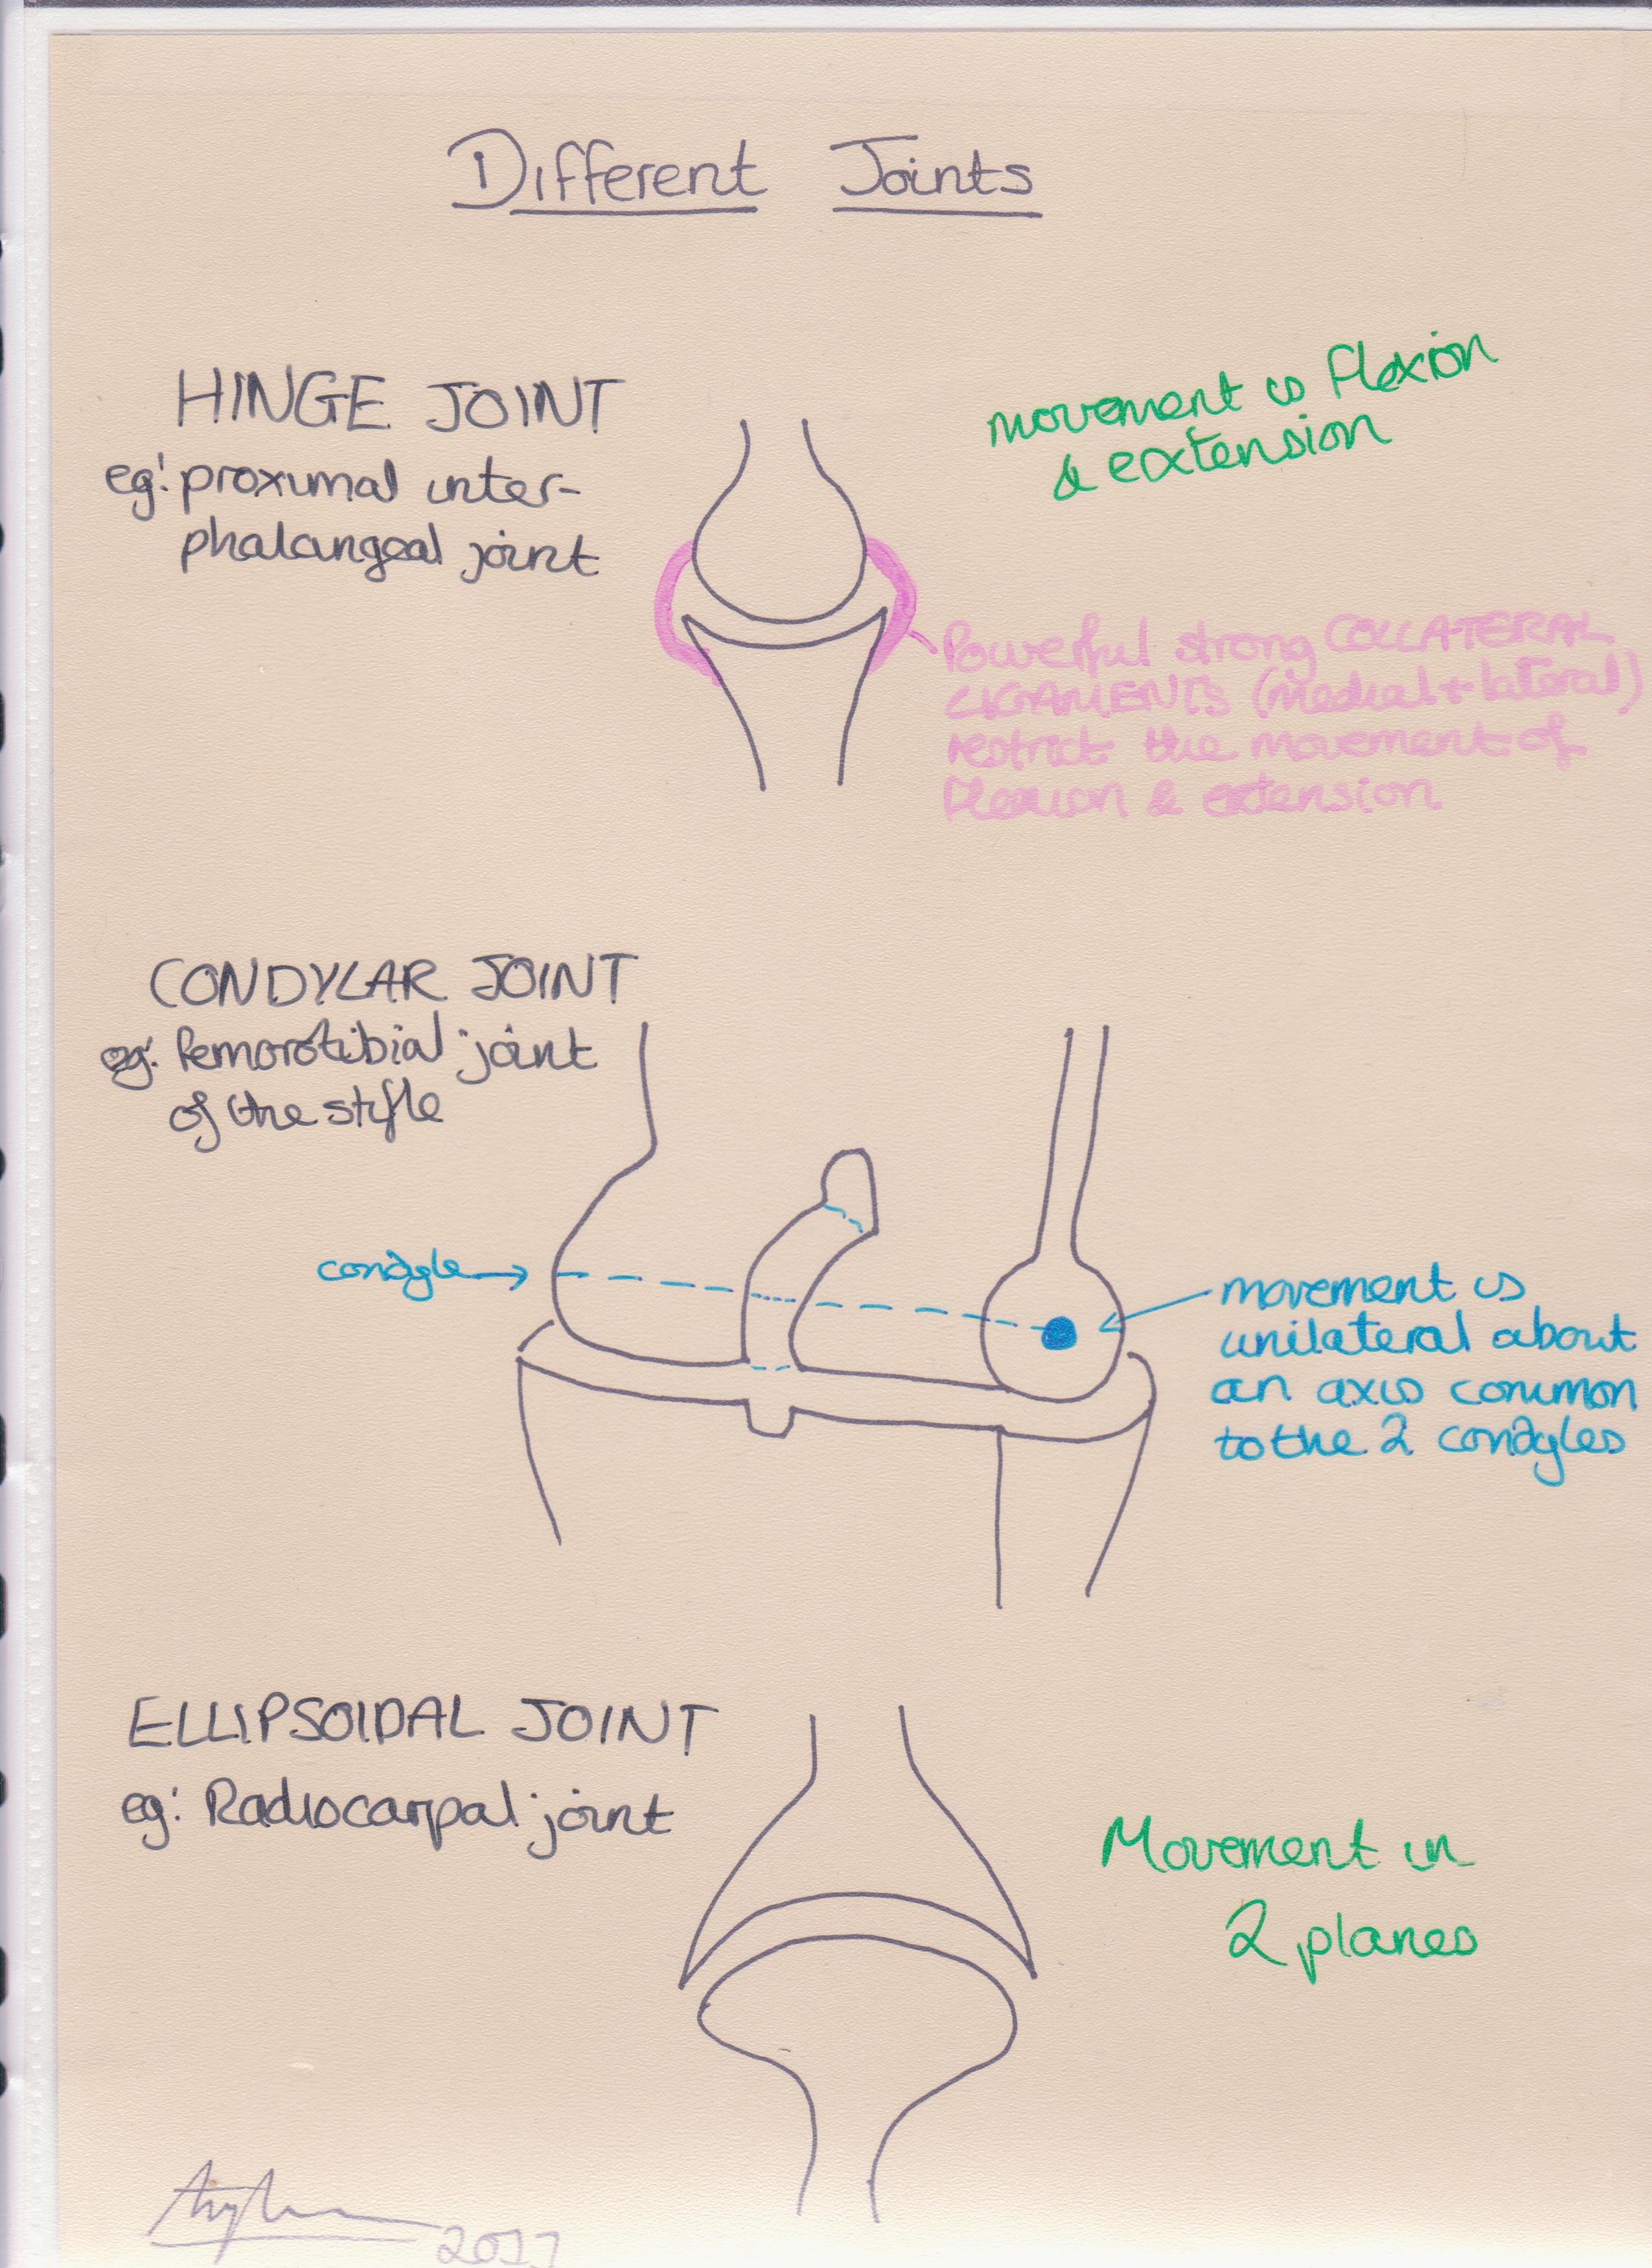 Different Joints
HINGE JOINT
eg: proximal inter-
phalangeal joint
movement is flexion
& extension
Powerful strong COLLATERAL
LIGAMENTS (medial + lateral)
restrict the movement of
flexion & extension
CONDYLAR JOINT
eg: femorotibial joint
of the stifle
condyle
movement is
unilateral about
an axis common
to the 2 condyles
ELLIPSOIDAL JOINT
eg: Radiocarpal joint
Movement in
2 planes